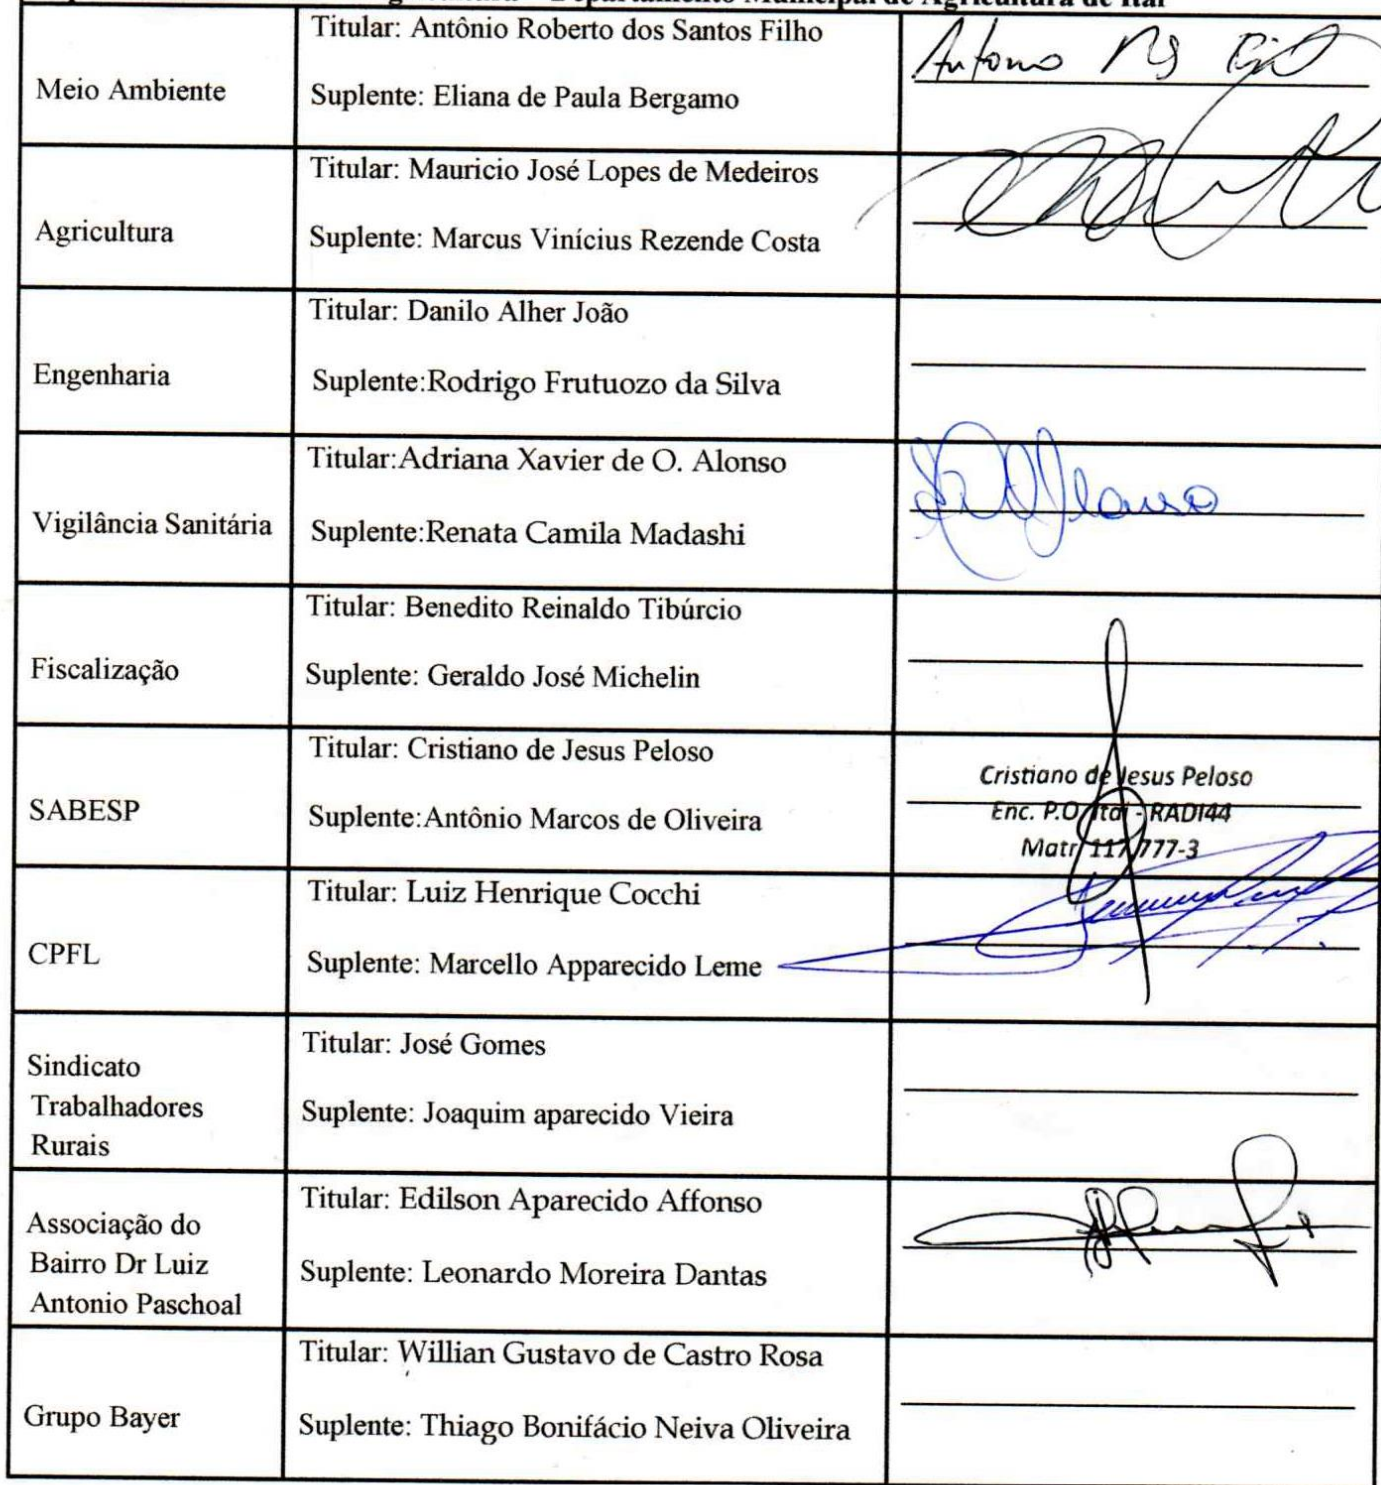 Departamento Municipal de Agricultura de Itaí
Meio Ambiente
Titular: Antônio Roberto dos Santos Filho
Suplente: Eliana de Paula Bergamo
Antonio
Agricultura
Titular: Mauricio José Lopes de Medeiros
Suplente: Marcus Vinícius Rezende Costa
Engenharia
Titular: Danilo Alher João
Suplente:Rodrigo Frutuozo da Silva
Vigilância Sanitária
Titular:Adriana Xavier de O. Alonso
Suplente:Renata Camila Madashi
Fiscalização
Titular: Benedito Reinaldo Tibúrcio
Suplente: Geraldo José Michelin
SABESP
Titular: Cristiano de Jesus Peloso
Suplente:Antônio Marcos de Oliveira
Cristiano de Jesus Peloso
Enc. P.O Itaí - RADI44
Matr 117.777-3
CPFL
Titular: Luiz Henrique Cocchi
Suplente: Marcello Apparecido Leme
Sindicato
Trabalhadores
Rurais
Titular: José Gomes
Suplente: Joaquim aparecido Vieira
Associação do
Bairro Dr Luiz
Antonio Paschoal
Titular: Edilson Aparecido Affonso
Suplente: Leonardo Moreira Dantas
Grupo Bayer
Titular: Willian Gustavo de Castro Rosa
Suplente: Thiago Bonifácio Neiva Oliveira